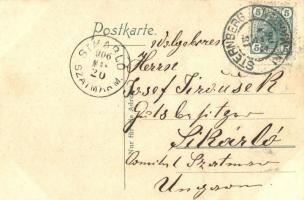 Postkarte.
Wolgeboren
Herrn
Josef
Gutsbesitzer
Sikárló
Comitat Szatmar
Ungarn
Nur für die Adresse
SIKÁRLÓ
906
20
SZATMÁR M.
STERNBERG
5
5